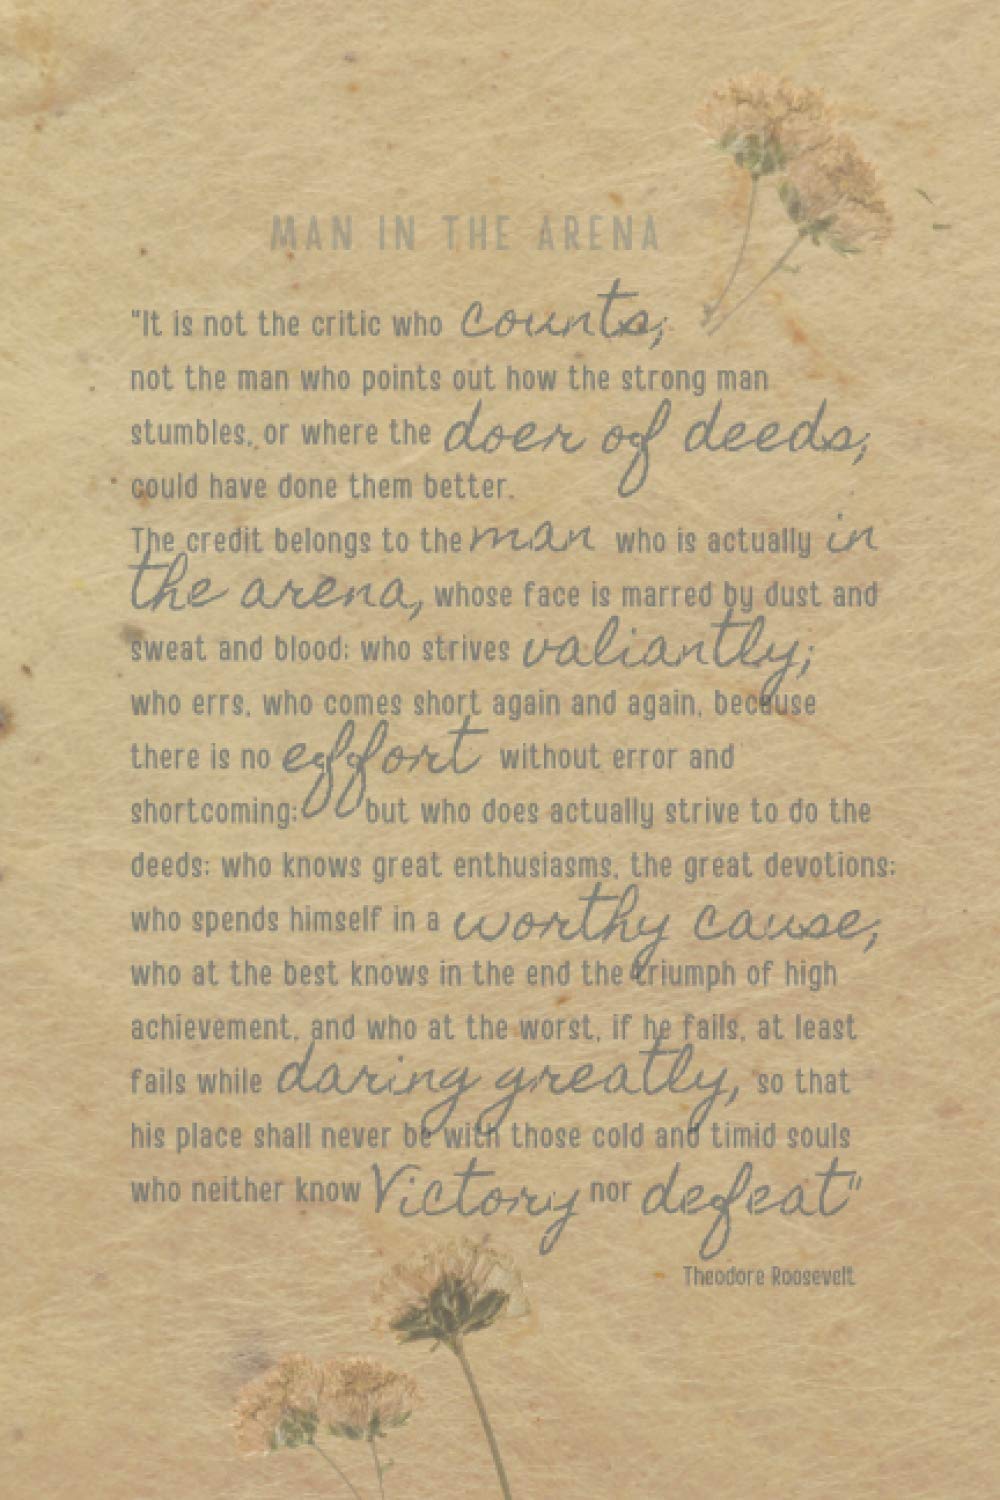 MAN IN THE ARENA
"It is not the critic who counts;
not the man who points out how the strong man
stumbles, or where the doer of deeds;
could have done them better.
The credit belongs to the man who is actually in
the arena, whose face is marred by dust and
sweat and blood; who strives valiantly;
who errs, who comes short again and again, because
there is no effort without error and
shortcoming; but who does actually strive to do the
deeds; who knows great enthusiasms, the great devotions;
who spends himself in a worthy cause,
who at the best knows in the end the triumph of high
achievement, and who at the worst, if he fails, at least
fails while daring greatly, so that
his place shall never be with those cold and timid souls
who neither know Victory nor defeat"
Theodore Roosevelt